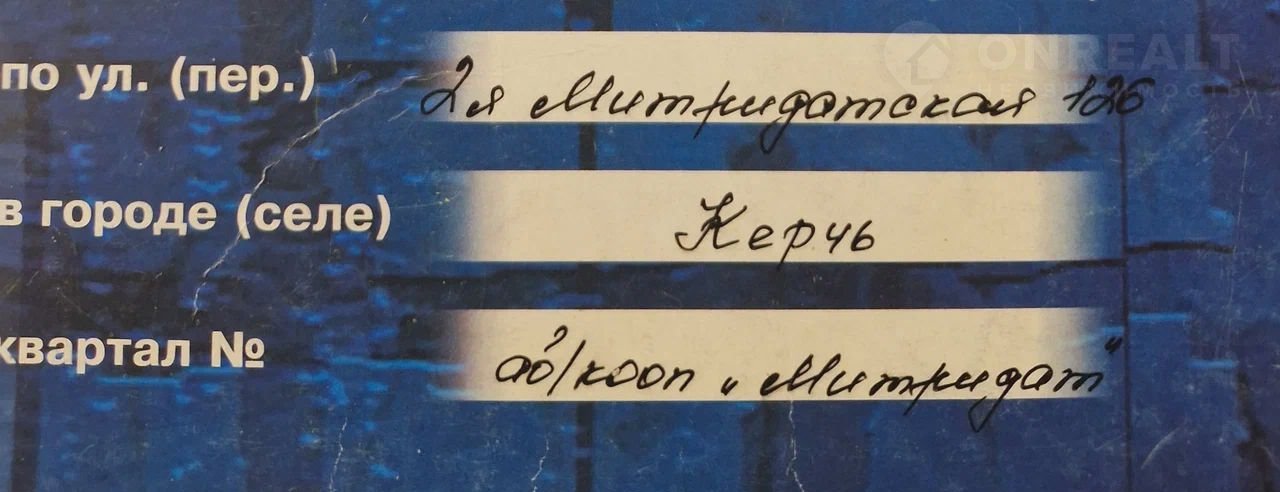 ONREALT
по ул. (пер.) 2я Митридатская 126
в городе (селе) Керчь
квартал № аб/кооп „Митридат"